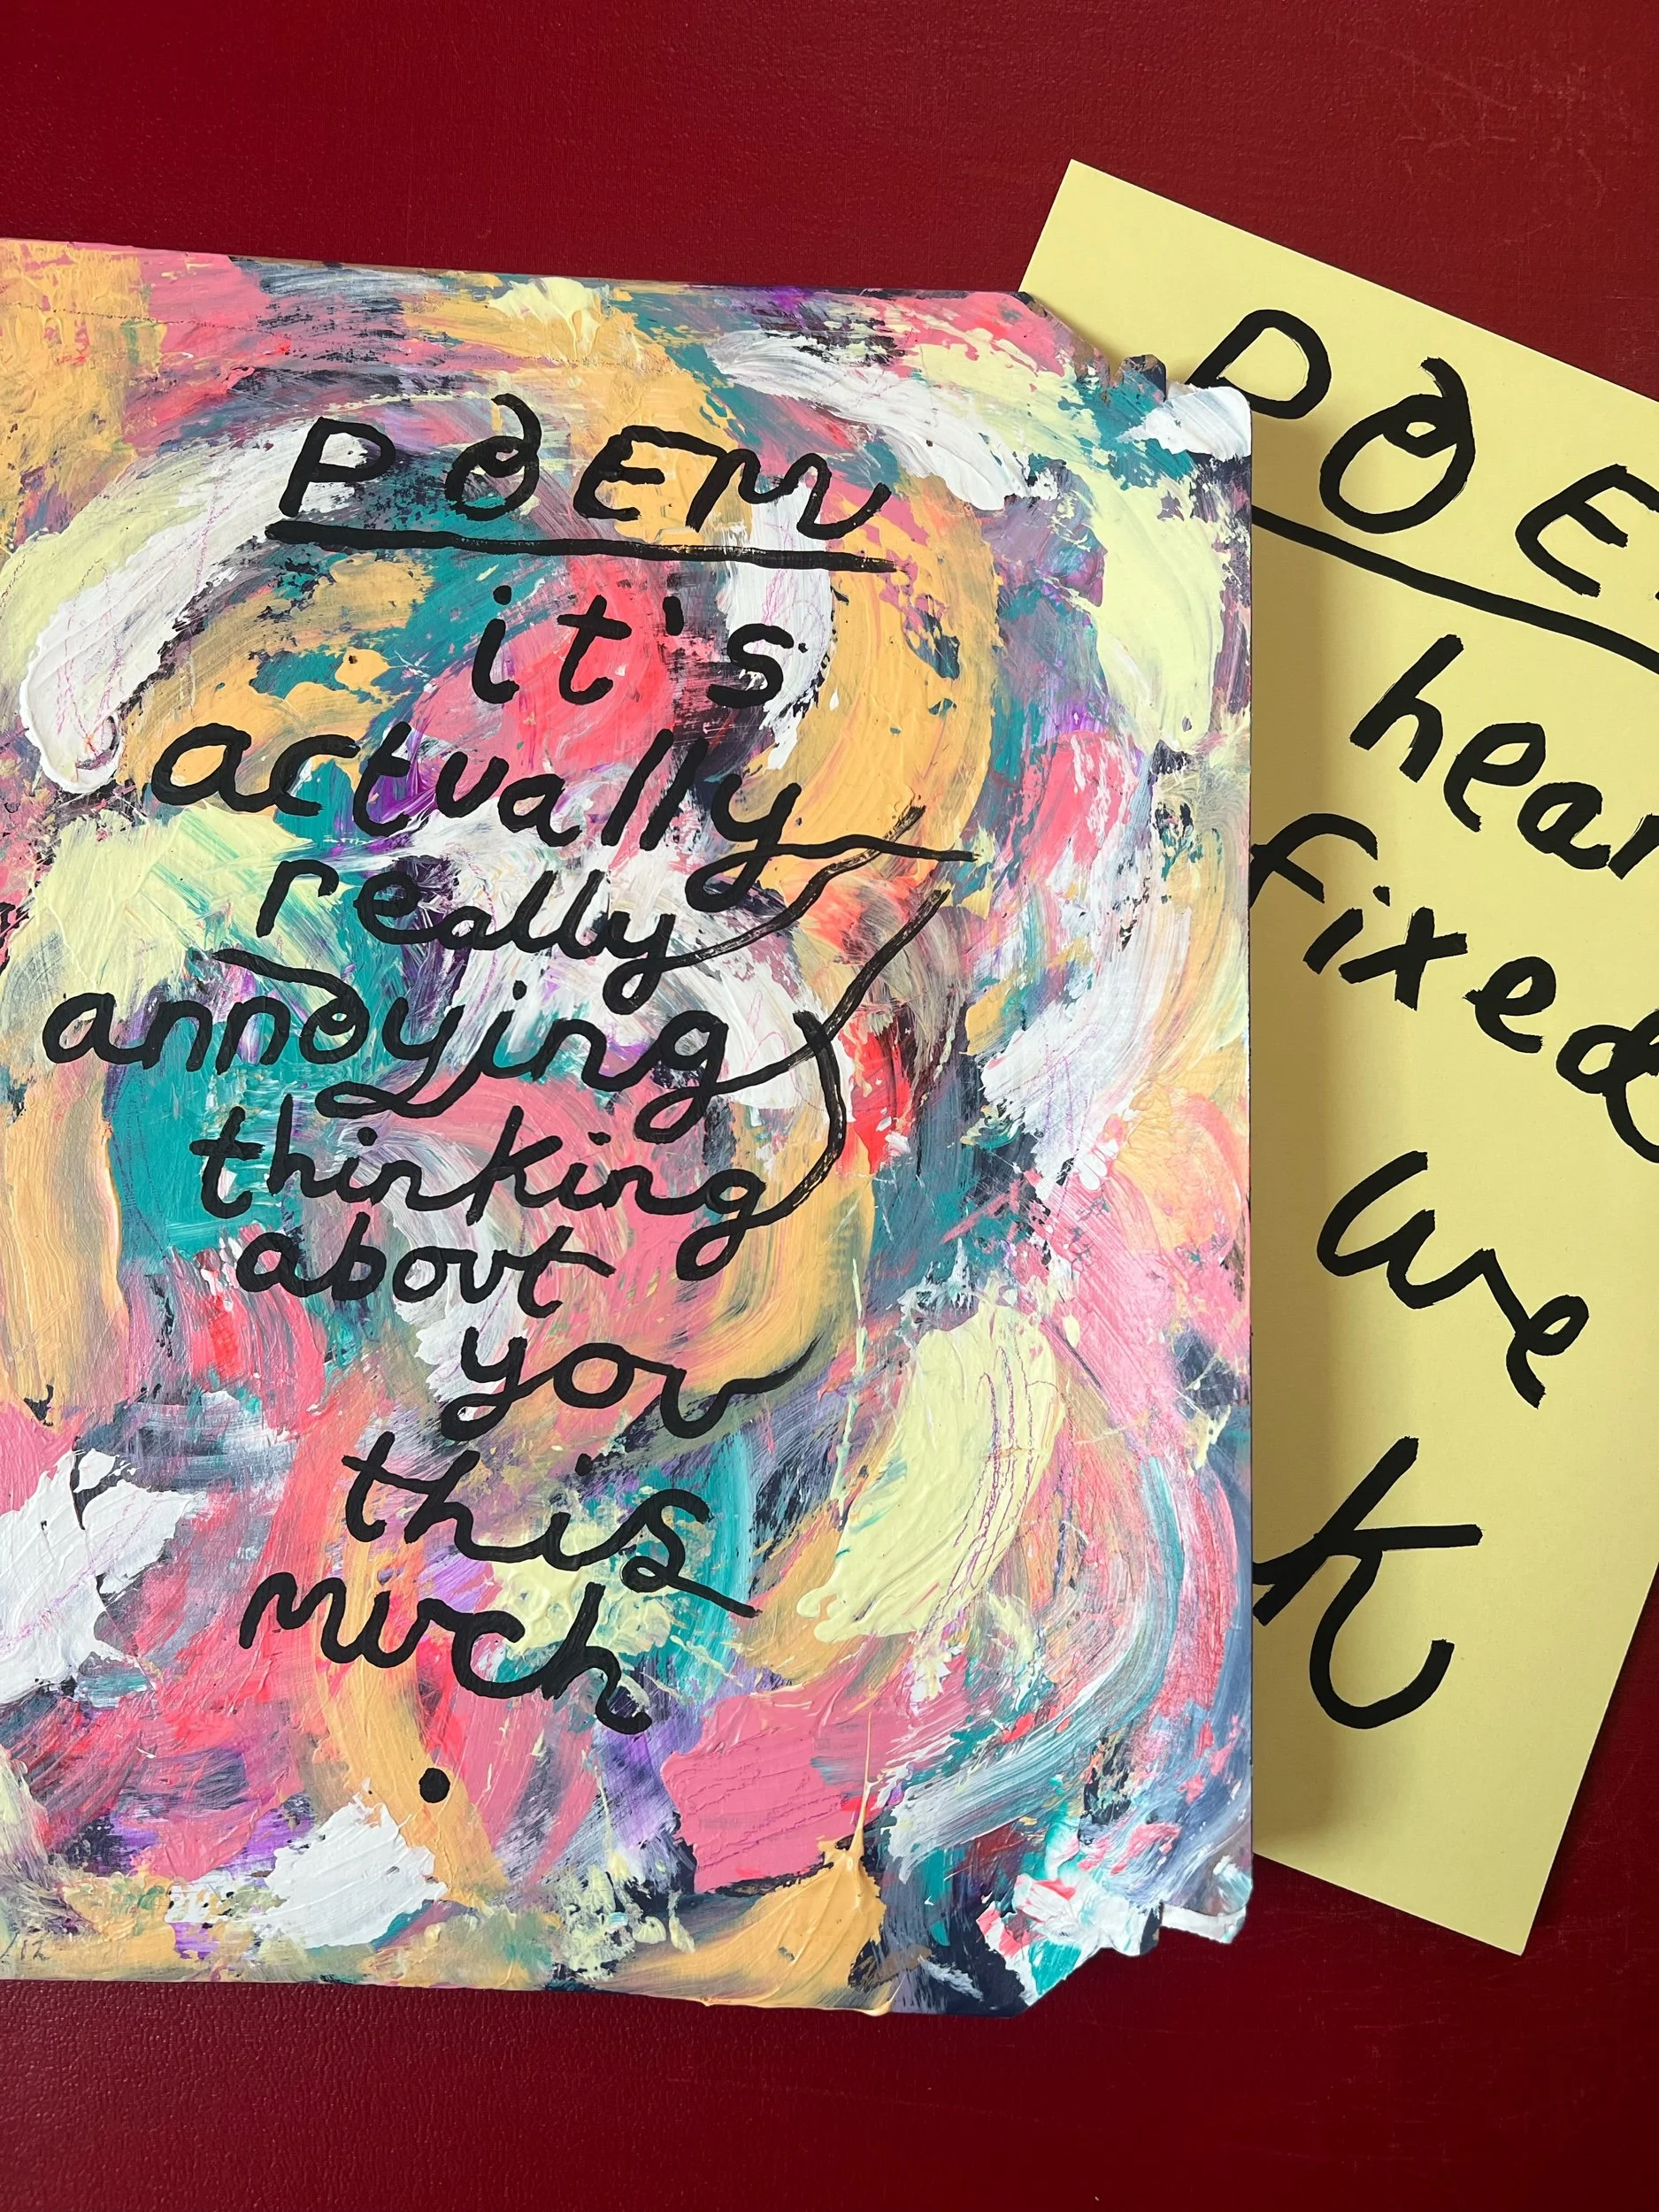 POEM
it's
actually
really
annoying
thinking
about
you
this
much
.
POE
hear
fixed
we
k